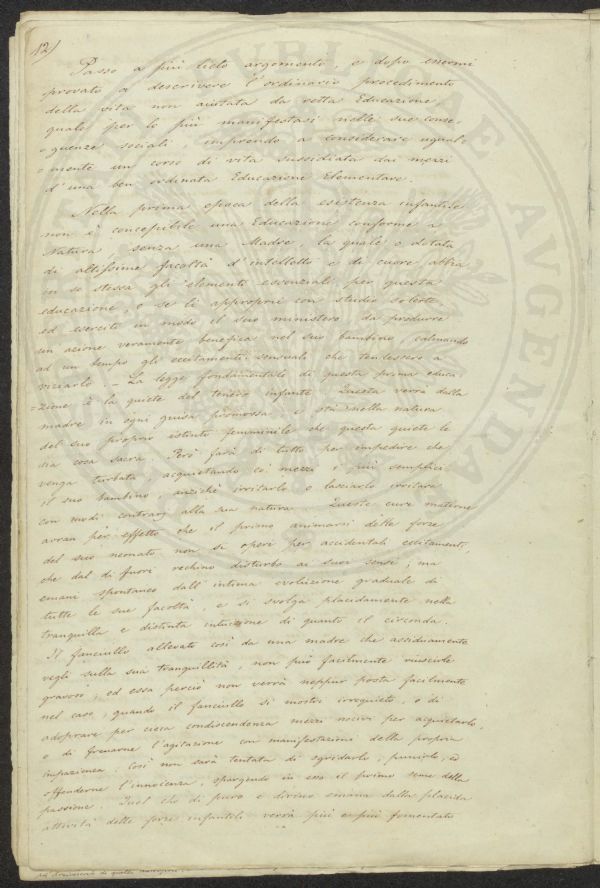 12)
Passo a più lieto argomento, e dopo essermi
provato a descrivere l'ordinario procedimento
della vita non aiutata da retta Educazione,
quale per lo più manifestasi nelle sue conse-
=guenze sociali, imprendo a considerare egual-
=mente un corso di vita sussidiata dai mezzi
d'una ben ordinata Educazione Elementare.
Nella prima epoca della esistenza infantile
non è concepibile una Educazione conforme a
Natura, senza una Madre, la quale o dotata
di altissime facoltà d'intelletto e di cuore abbia
in se stessa gli elementi essenziali per questa
educazione, o se li approprii con studio solerte,
ed eserciti in modo il suo ministero, da produrre
un azione veramente benefica nel suo bambino, calmando
ad un tempo gli eccitamenti sensuali che tendessero a
viziarlo. - La legge fondamentale di questa prima educa-
=zione è la quiete del tenero infante. Questa verrà dalla
madre in ogni guisa promossa: e sta nella natura
del suo proprio istinto femminile che questa quiete le
sia cosa sacra. Però farà di tutto per impedire che
venga turbata acquietando co' mezzi i più semplici
il suo bambino, anzichè irritarlo o lasciarlo irritare
con modi contrarj alla sua natura. Queste cure materne
avran per effetto che il primo animarsi delle forze
del suo neonato non si operi per accidentali eccitamenti,
che dal di fuori rechino disturbo ai suoi sensi; ma
emani spontaneo dall'intima evoluzione graduale di
tutte le sue facoltà, e si svolga placidamente nella
tranquilla e distinta intuizione di quanto il circonda.
Il fanciullo allevato così da una madre che assiduamente
vegli sulla sua tranquillità, non può facilmente riuscirle
gravoso, ed essa perciò non verrà neppur posta facilmente
nel caso, quando il fanciullo si mostri irrequieto, o di
adoprare per cieca condiscendenza mezzi nocivi per acquietarlo,
o di frenarne l'agitazione con manifestazioni della propria
impazienza. Così non sarà tentata di sgridarlo, punirlo, ed
offenderne l'innocenza, spargendo in esso il primo seme della
passione. Quel che di puro e divino emana dalla placida
attività delle forze infantili verrà più e più fomentato